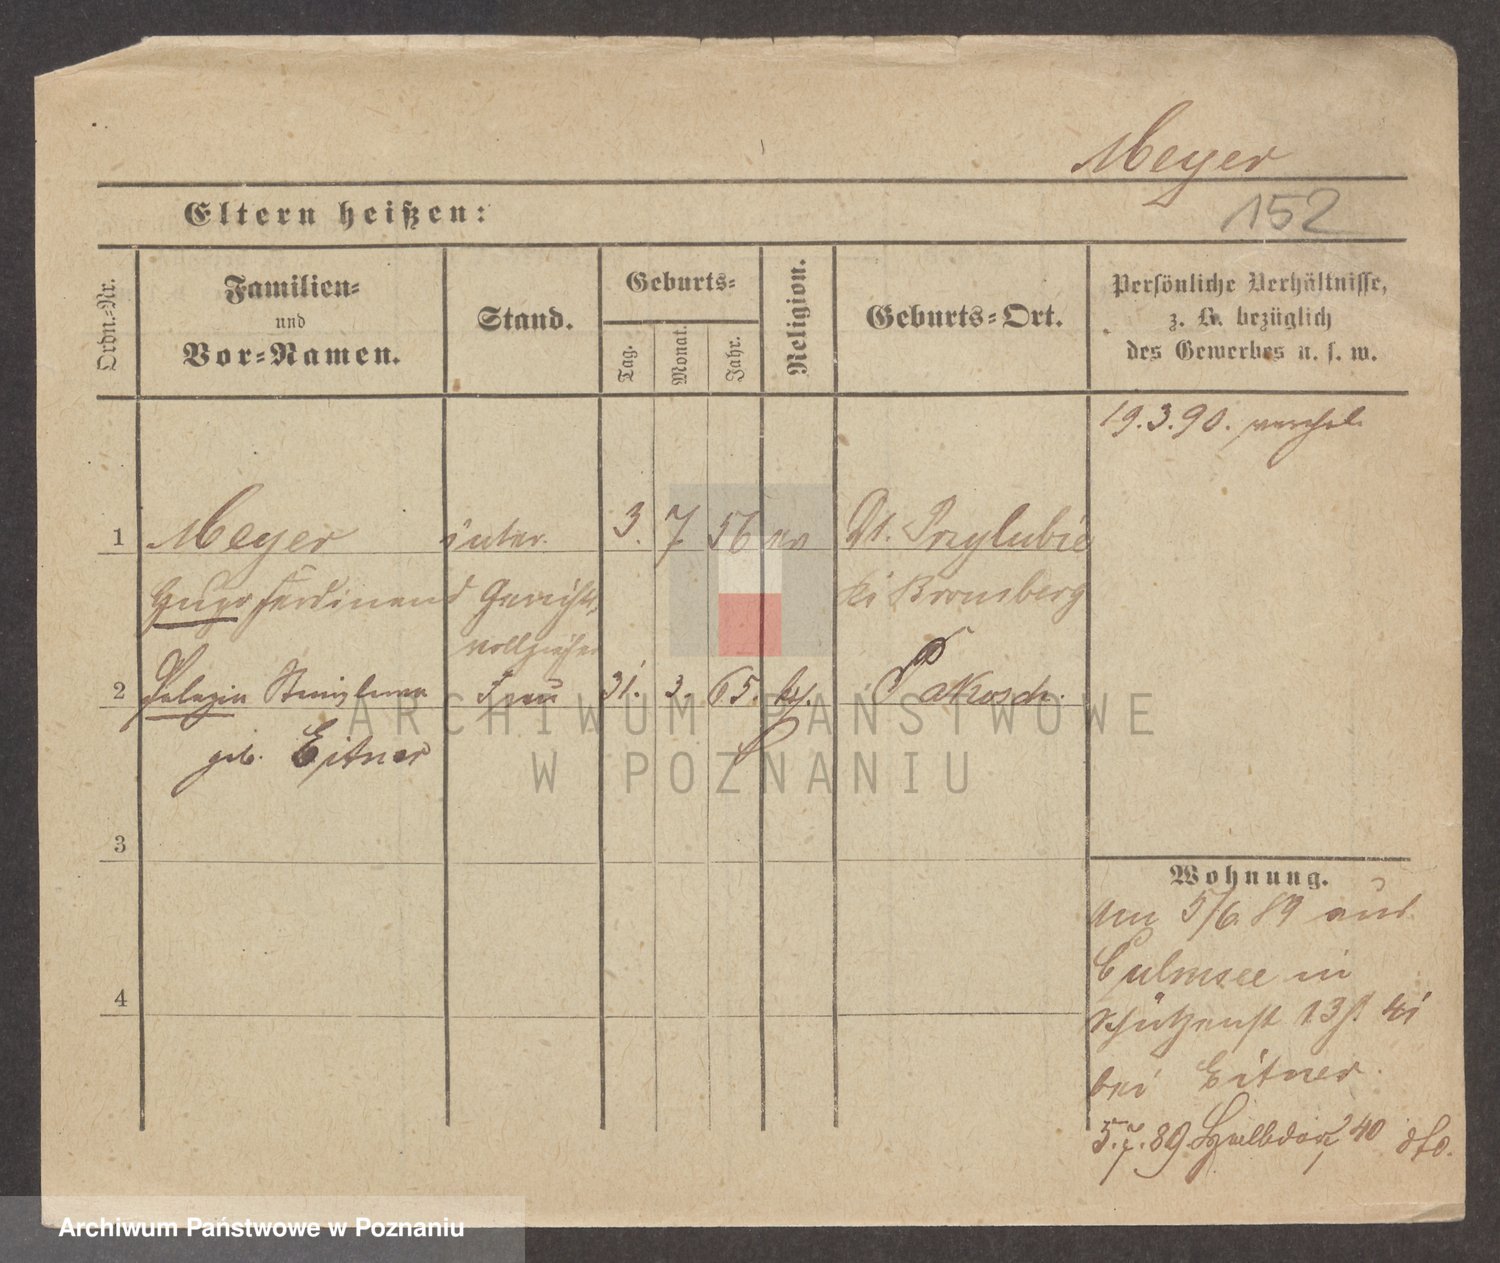 Meyer
152
Eltern heißen:
Ordn.-Nr.
Familien-
und
Vor-Namen.
Stand.
Geburts-
Tag.
Monat.
Jahr.
Religion.
Geburts-Ort.
Persönliche Verhältnisse,
z. B. bezüglich
des Gewerbes u. s. w.
19.3.90.
1 Meyer inter. 3. 7 56 ev Dt. Przylubie
Hugo Ferdinand Gerichts Kr Bromberg
vollzieher
2 Pelagia Frau 31. 3. 65. k. Pakosch.
geb. Eitner
3
4
Wohnung.
Am 5/6 89 aus
Culmsee in
Schützenst 13
bei Eitner.
5.7.89 Halbdorf 40 dto.
ARCHIWUM PAŃSTWOWE
W POZNANIU
Archiwum Państwowe w Poznaniu